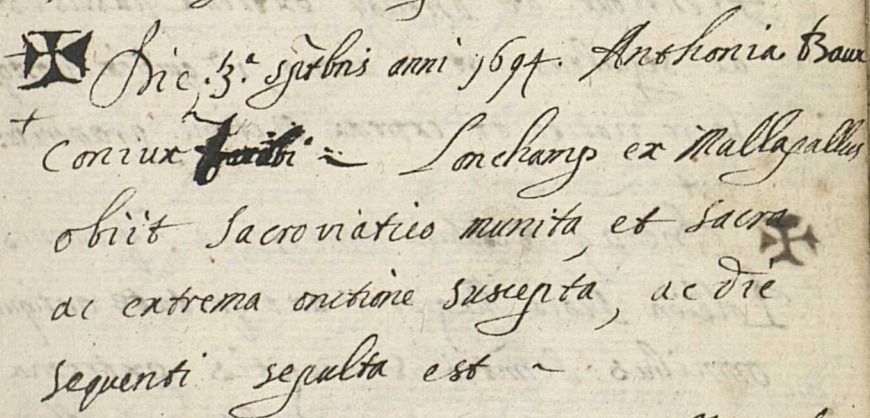 Die .3.ª 7bris anni 1694. Anthonia Baux
Coniux Lonchamp ex Mallapallus
obiit Sacro viatico munita, et sacra
ac extrema onctione suscepta, ac die
sequenti sepulta est ~